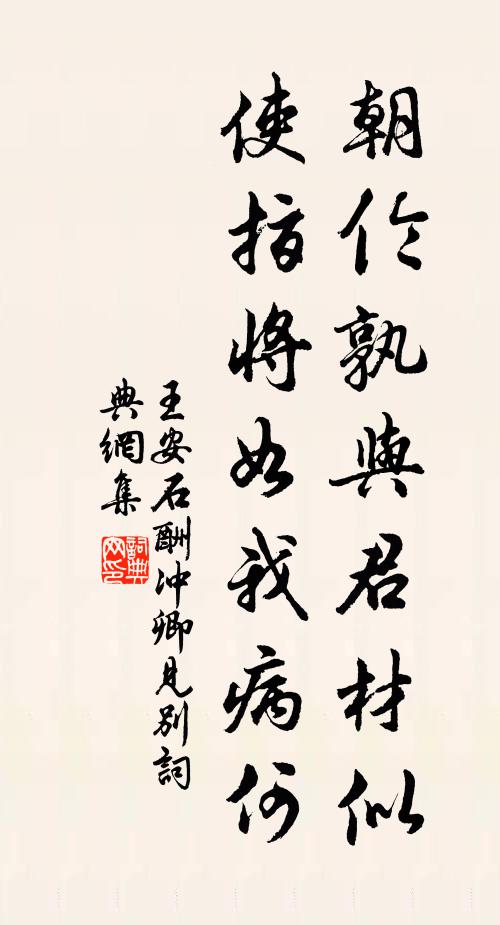 朝伦孰與君材似
使指將如我病何
王安石酬冲卿見別詞
典網集
詞典網印